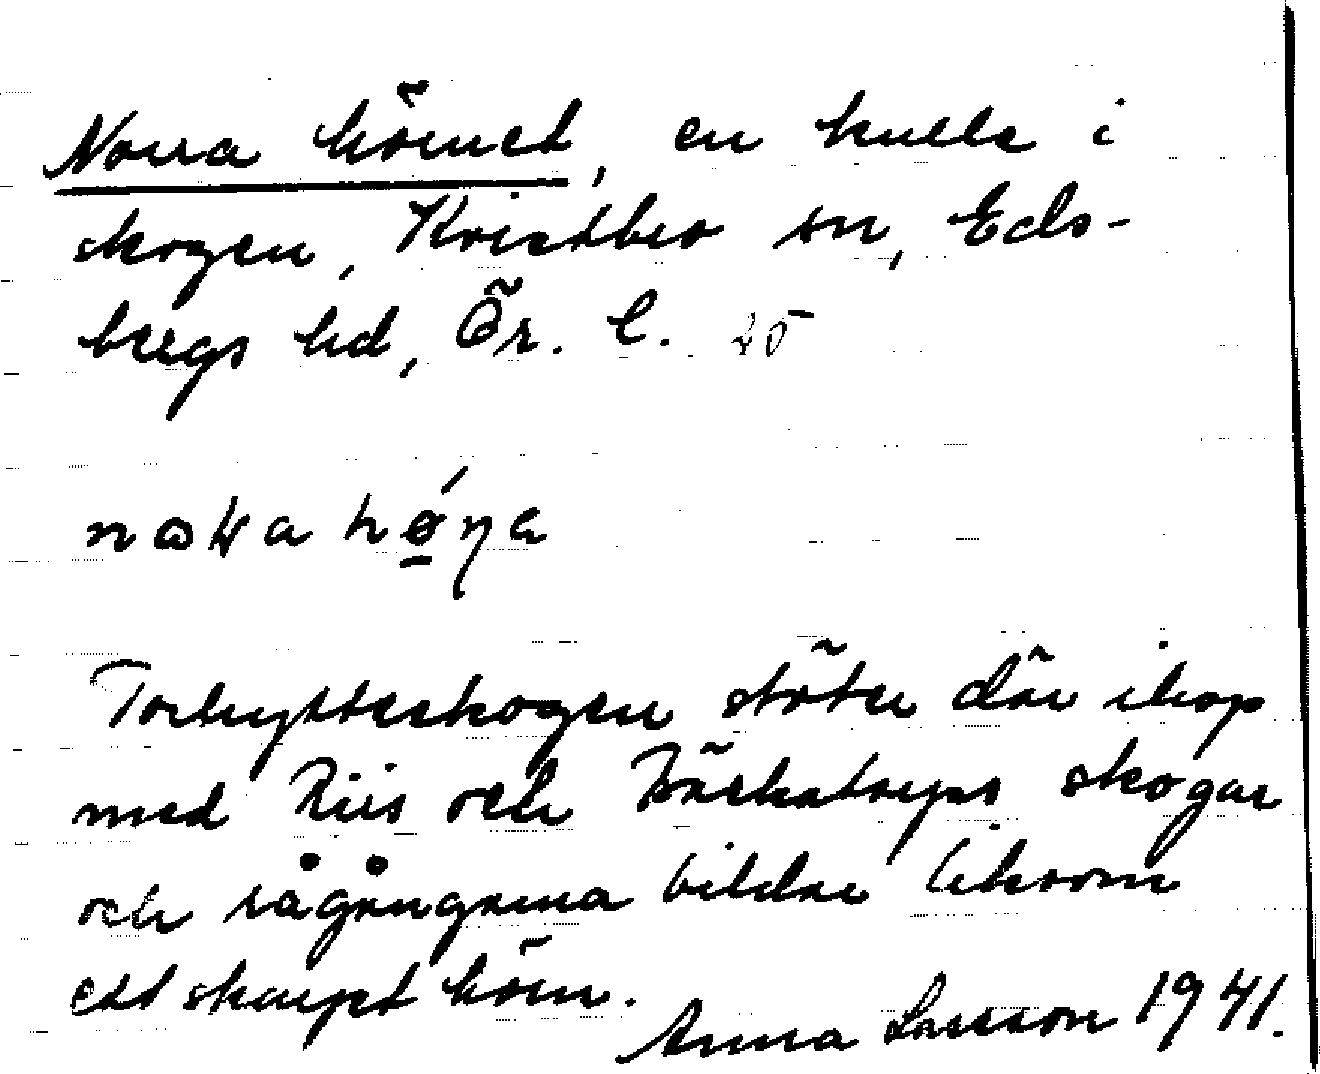 Norra hörnet, en kulle i
skogen, Kvistbro sn, Eds-
bergs hd, Ör. l. 25
Torhytteskogen stöter där ihop
med Riis och Bäckatorps skogar
och rågångarna bildar liksom
ett skarpt hörn.
Anna Larsson 1941.